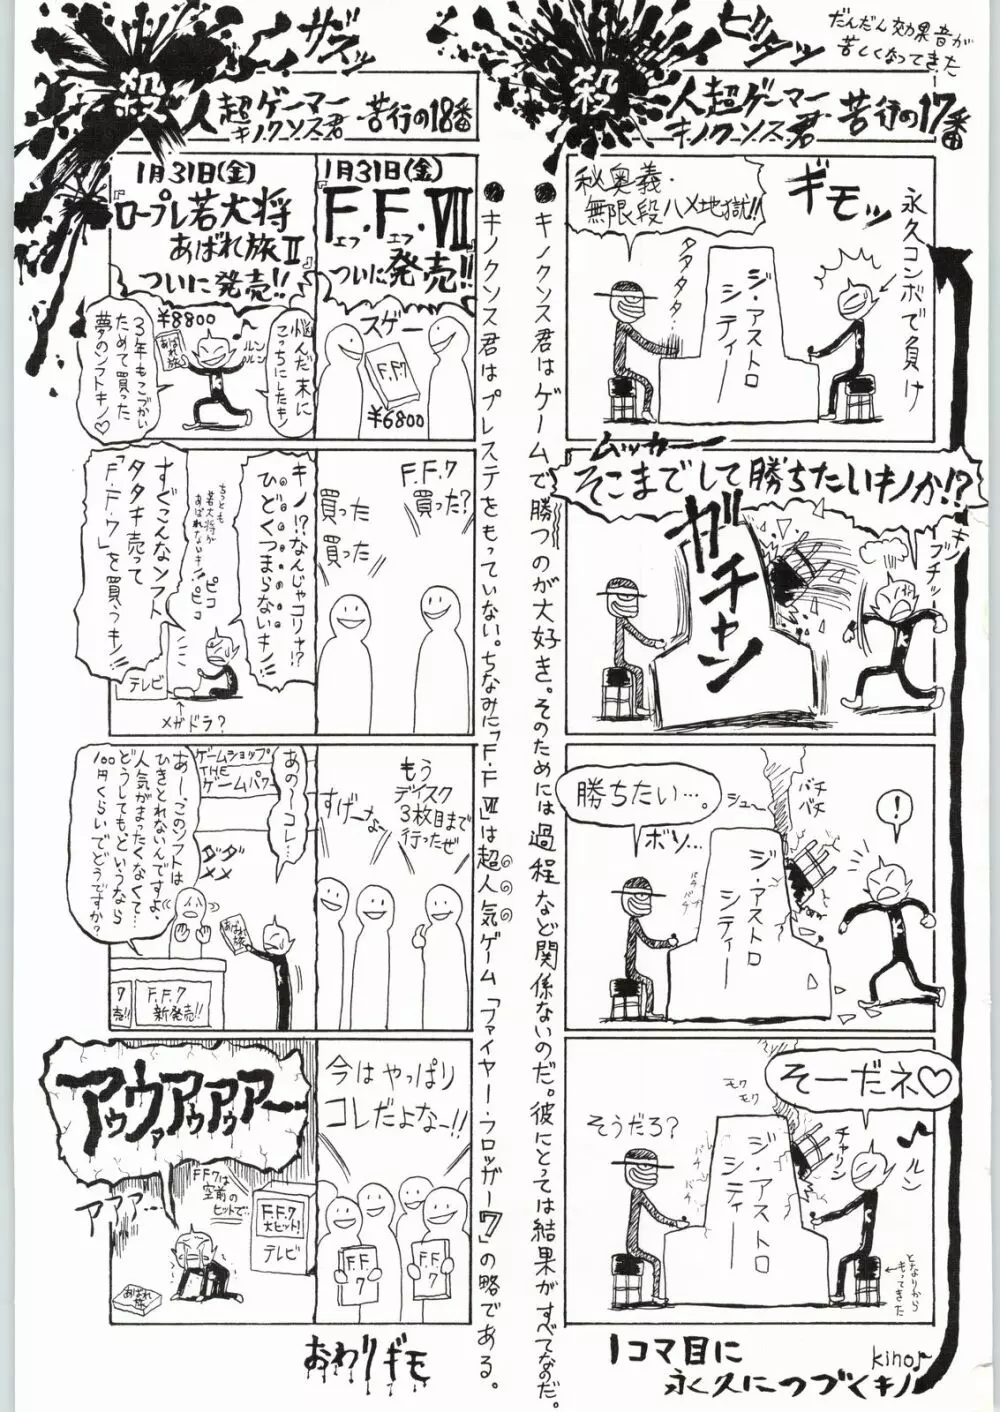 だんだん効果音が
苦しくなってきた
ビシャッ
殺人超ゲーマー
キノクンス君
苦行の17番
永久コンボで負け
ギモッ
秘奥義・
無限段ハメ地獄!!
タタタタ…
ジ・アストロ
シティー
ムッカー
そこまでして勝ちたいキノか!?
キノ
ブチッ
ガチャン
勝ちたい…。
ボソ…
シュー
バチ
バチ
バチ
バチ
!
ジ・アストロ
シティー
そーだネ♡
モク
モク
そうだろ?
チャリン
ルン
バチ
バチ
ジ・アストロ
シティー
となりから
もってきた
1コマ目に
永久につづくキノ
kino♪
●キノクンス君はゲームで勝つのが大好き。そのためには過程など関係ないのだ。彼にとっては結果がすべてなのだ。
ザズッ
殺人超ゲーマー
キノクンス君
苦行の18番
1月31日(金)
『F.F.Ⅶ』
エフ エフ
ついに発売!!
スゲー
F.F.7
¥6800
1月31日(金)
『ロープレ若大将
あばれ旅Ⅱ』
ついに発売!!
悩んだ末に
こっちにしたキノ
ルン
ルン
¥8800
あばれ旅
3年もこづかい
ためて買った
夢のソフトキノ♡
F.F.7
買った?
買った
買った
キノ!?なんじゃコリャ!?
ひどくつまらないキノ!!
ちっとも
若大将が
あばれないキノ!!
ピコ
ピコ
すぐこんなソフト
タタキ売って
「F.F.7」を買うキノ!!
テレビ
メガドラ?
もう
ディスク
3枚目まで
行ったぜ
すげーなー
あの〜コレ…
ゲームショップ
THE
ゲームパワー
ダメ
ダメ
あー、このソフトは
ひきとれないんですよ、
人気がまったくなくて…
どうしてもというなら
100円くらいでどうですか?
あばれ旅
F.F.7
新発売!!
7
売!!
今はやっぱり
コレだよなー!!
F.F.
7
F.F.
7
アウウァアウアウァアー…
アアア…
FF7は
空前の
ヒットで…
F.F.7
大ヒット!
テレビ
あばれ
旅
おわりギモ
●キノクンス君はプレステをもっていない。ちなみに「F.F.Ⅶ」は超人気ゲーム「ファイヤー・フロッガー7」の略である。